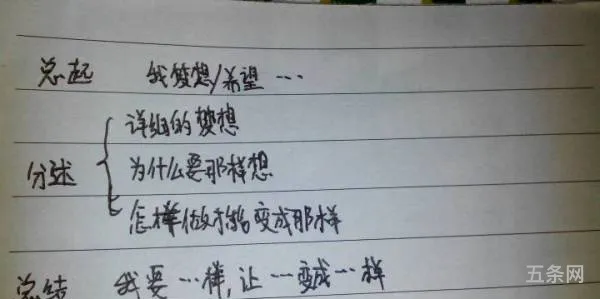 总起 我梦想/希望…
详细的梦想
分述 为什么要那样想
怎样做才能变成那样
总结 我要…样,让…变成…样
五条网